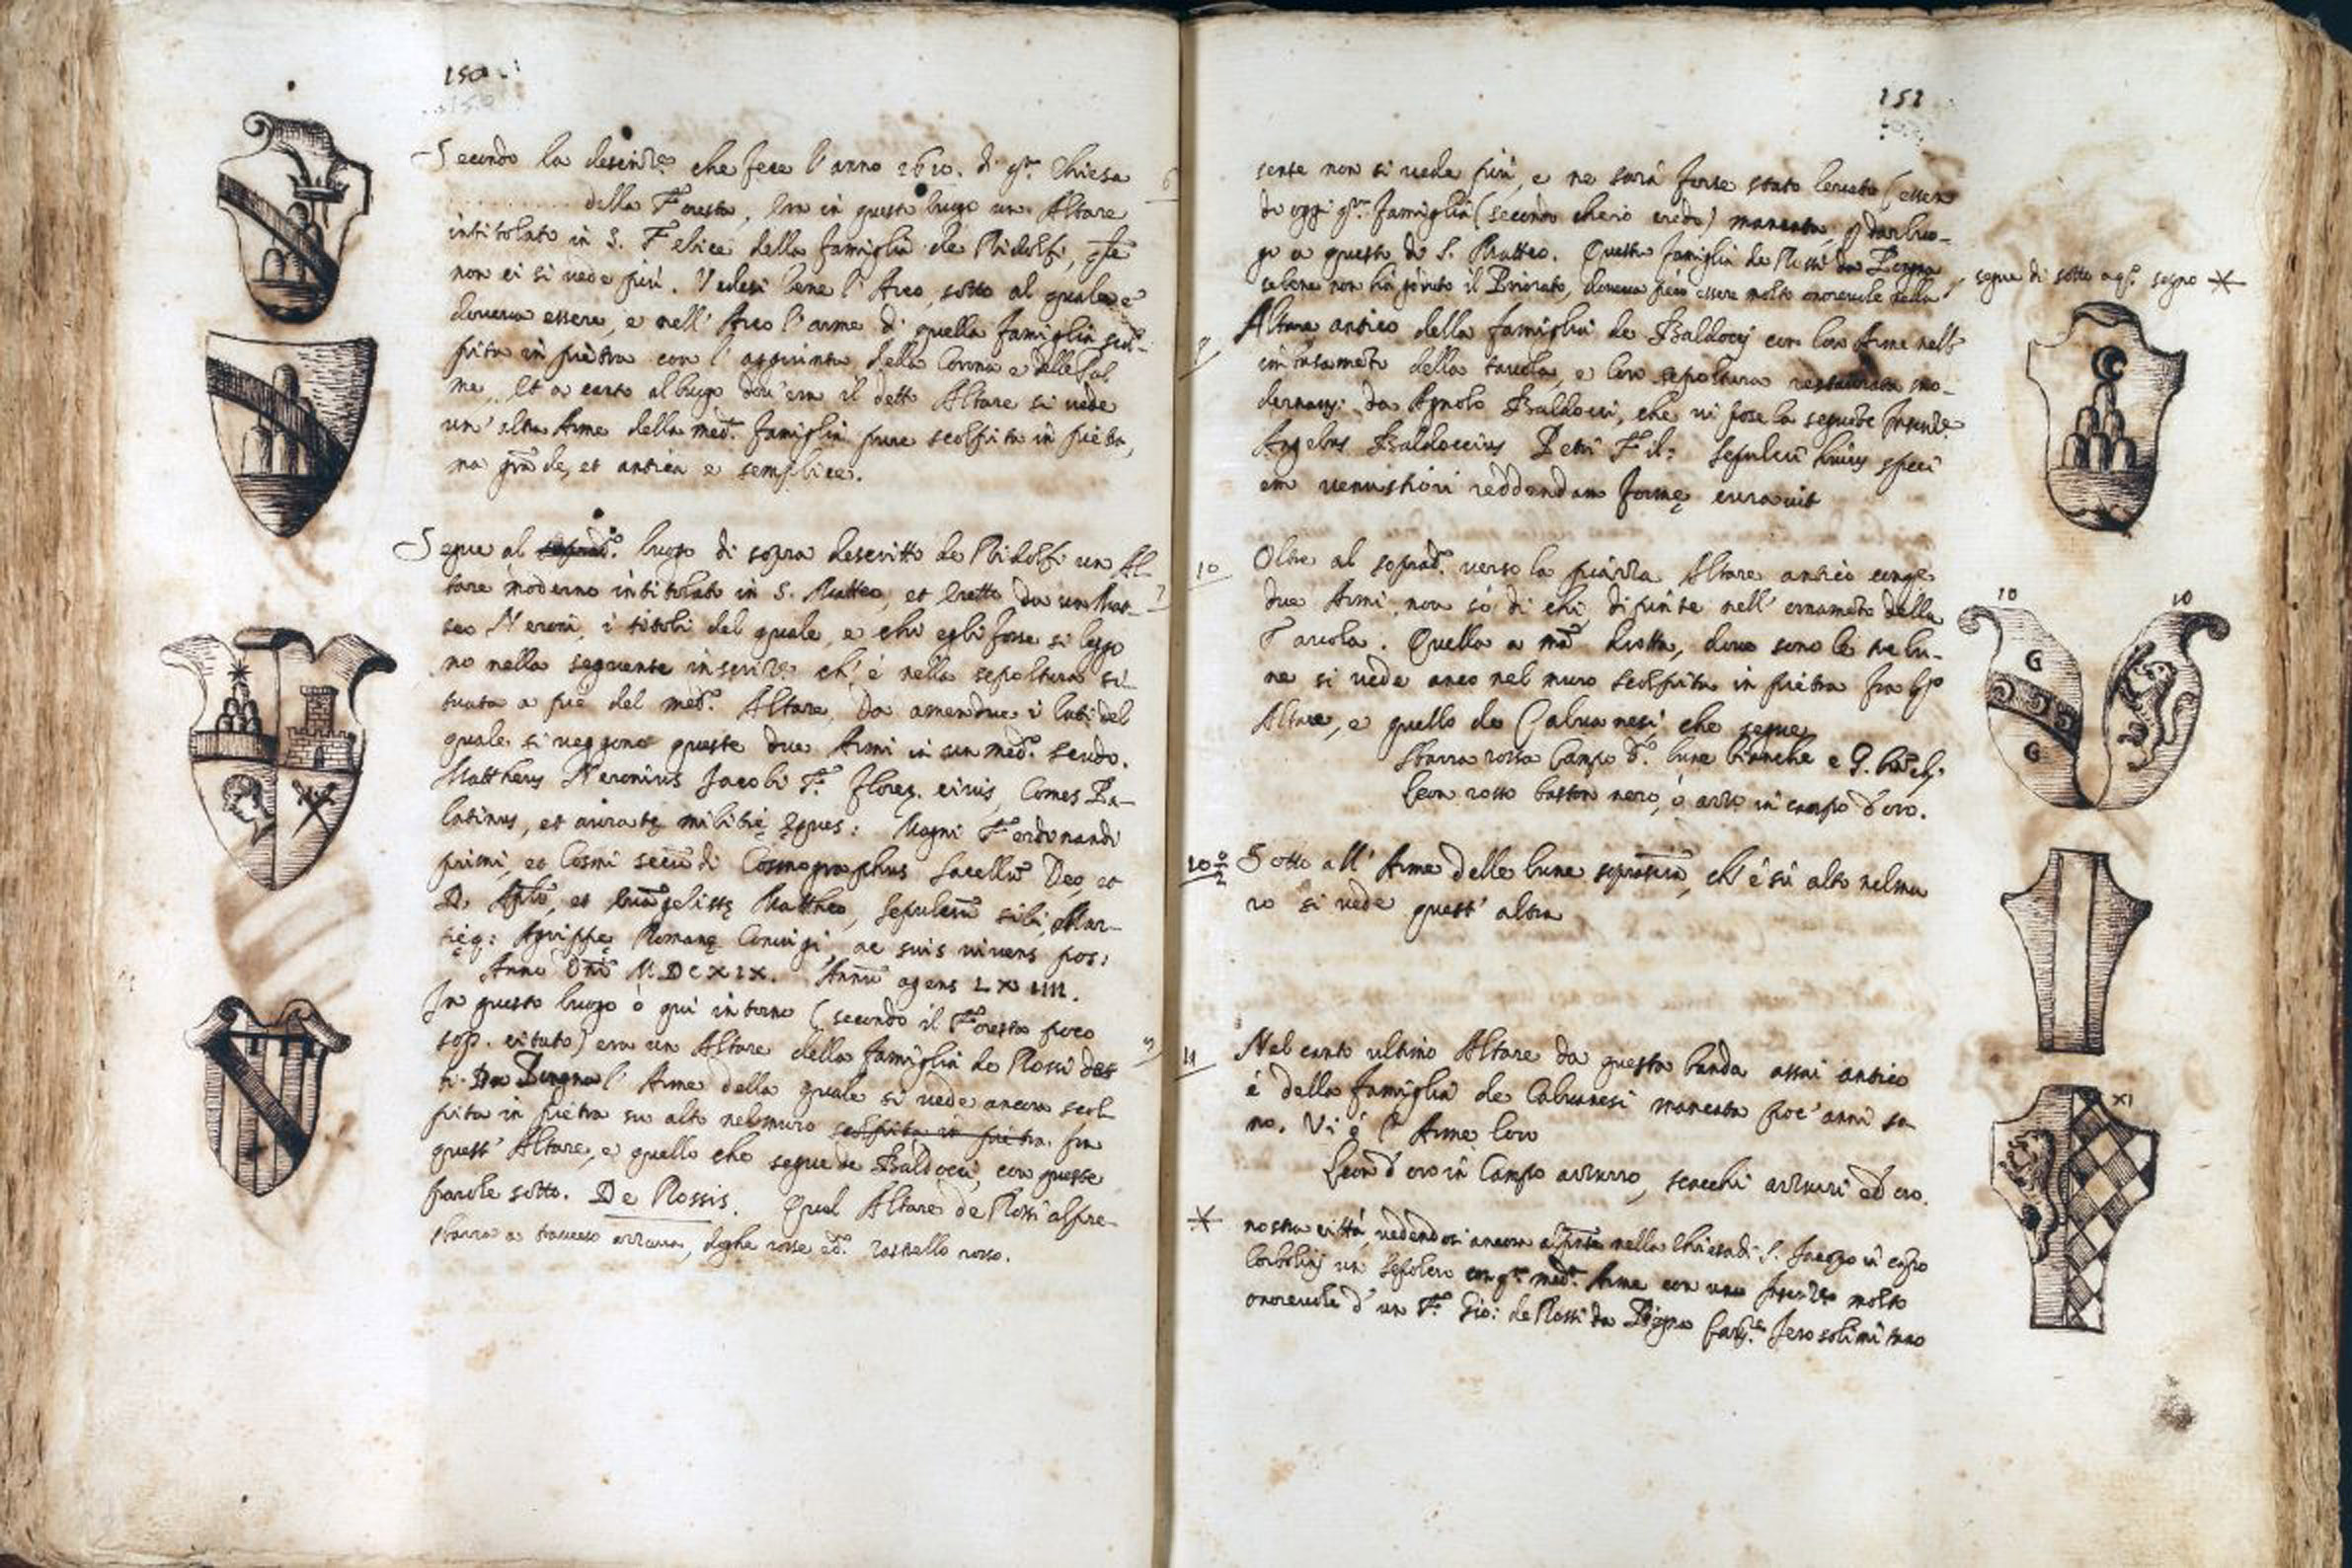 150
Secondo la descriz.e che fece l'anno 1610. di q.ta Chiesa
della Foresta, era in questo luogo un Altare
intitolato in S. Felice della famiglia de Ridolfi, che
non ci si vede più. Vedesi bene l'Arco, sotto al quale e
doveva essere, e nell'Arco l'arme di quella famiglia scol-
pita in pietra con l'aggiunta della Corona e delle Pal
me. Et a canto al luogo dov'era il detto Altare si vede
un'altra Arme della med.a famiglia pure scolpita in pietra,
ma grade, et antica e semplice.
6
Segue al luogo di sopra descritto de Ridolfi un Al-
tare moderno intitolato in S. Matteo, et eretto da un Mat-
teo Neroni, i titoli del quale, e chi egli fosse si leggo
no nella seguente inscriz.e ch'è nella sepoltura si-
tuata a piè del med.o Altare, da amendue i lati del
quale si veggono queste due Armi in un med.o scudo.
7
Mattheus Neronius Jacobi F. Floren. civis, Comes Pa-
latinus, et auratę militię Eques: Magni Ferdinandi
primi, et Cosmi secudi Cosmographus Sacellu Deo, et
D. Aplo, et Euagelistę Mattheo, sepulcru sibi, Mar-
tięq: Agrippę Romanę Coniugi, ac suis vivens pos:
Anno Dni MDCXIX. Annu agens LXIIII.
In questo luogo ò qui intorno (secondo il Foresta poco
sop.a citato) era un Altare della famiglia de Rossi det
ti Da l'Arme della quale si vede ancora scol
pita in pietra su alto nel muro scolpita in pietra. fra
quest'Altare, e quello che segue de Baldocci, con queste
parole sotto. De Rossis. Qual Altare de Rossi al pre-
sbarra a traverso azzurra, doghe rosse ed.o rastrello rosso.
151
sente non si vede più, e ne sarà forse stato levato (essen
do oggi q.ta famiglia (secondo che io credo) mancata, p dar luo-
go a questo di S. Matteo. Questa famiglia de Rossi da
sebene non hà goduto il Priorato, doveva però essere molto onorevole nella
segue di sotto a q.o segno *
9
Altare antico della famiglia de Baldocij con loro Arme nell'
della tavola, e loro sepoltura restaurata mo-
dernam: da Agnolo Baldocci, che vi pose la seguete
Angelus Baldoccius Petri Fil: sepulcru huius speci
em venustiori reddendam formę curavit
10
Oltre al soprad.o verso la piazza Altare antico con
due Armi, non sò di chi, dipinte nell'ornameto della
Tavola. Quella a ma dritta, dove sono le tre lu-
ne si vede anco nel muro scolpita in pietra fra
Altare, e quello de Calvanesi che segue
Sbarra rossa Campo lune bianche e G.
Leon rosso baston nero, ò azzo in campo d'oro.
10
10
G
G
10
Sotto all'Arme delle lune ch'è sù alto nel mu
ro si vede quest'altra
11
Nel canto ultimo Altare da questa banda assai antico
è della famiglia de Calvanesi mancata poc'anni so-
no. Vi è l'Arme loro
Leon d'oro in Campo azzurro, scacchi azzurri ed oro.
XI
* nostra città, vedendosi ancora nella Chiesa di S. Jacopo in capo
Corbolinj un sepolcro con q.ta med.a Arme con una molto
onorevole d'un F. Gio: de Rossi da Jerosolimitano